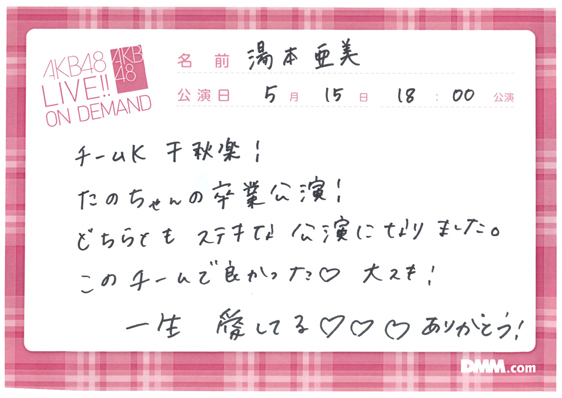 AKB48
LIVE!!
ON DEMAND
AKB
48
名前 湯本亜美
公演日 5月 15日 18:00 公演
チームK 千秋楽!
たのちゃんの卒業公演!
どちらとも ステキな 公演になりました。
このチームで良かった♡ 大スキ!
一生 愛してる♡♡♡ ありがとう!
DMM.com